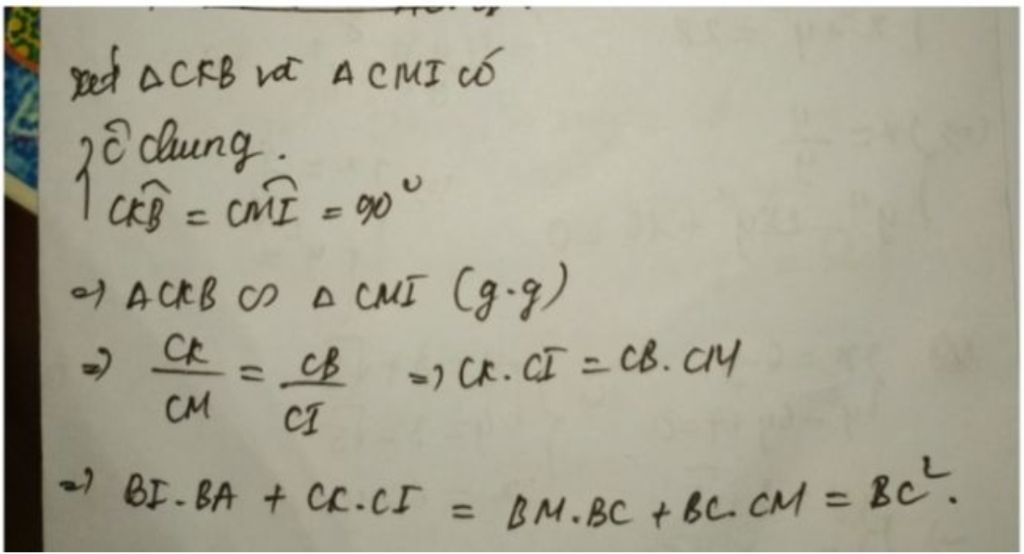 xét ΔCKB và ΔCMI có
{ Ĉ chung.
CKB̂ = CMÎ = 90°
=> ΔCKB ∽ Δ CMI (g.g)
=> CK/CM = CB/CI => CK.CI = CB.CM
=> BI.BA + CK.CI = BM.BC + BC.CM = BC².